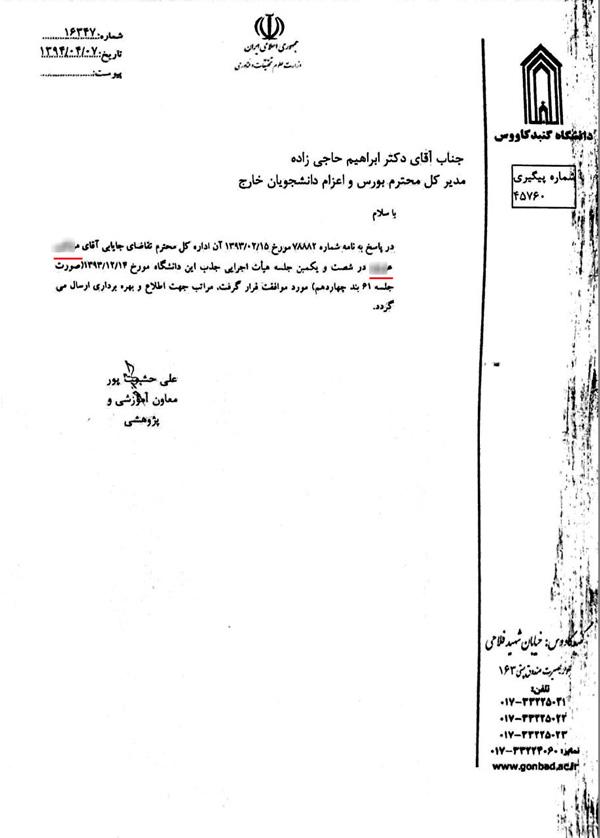 جمهوری اسلامی ایران
وزارت علوم تحقیقات و فناوری
شماره: ۱۶۳۴۷
تاریخ: ۱۳۹۴/۰۴/۰۷
پیوست:
دانشگاه گنبدکاووس
شماره پیگیری
۴۵۷۶۰
جناب آقای دکتر ابراهیم حاجی زاده
مدیر کل محترم بورس و اعزام دانشجویان خارج
با سلام
در پاسخ به نامه شماره ۷۸۸۸۲ مورخ ۱۳۹۳/۰۲/۱۵ آن اداره کل محترم تقاضای جایابی آقای
در شصت و یکمین جلسه هیأت اجرایی جذب این دانشگاه مورخ ۱۳۹۳/۱۲/۱۴(صورت
جلسه ۶۱ بند چهاردهم) مورد موافقت قرار گرفت، مراتب جهت اطلاع و بهره برداری ارسال می
گردد.
علی حشمت پور
معاون آموزشی و
پژوهشی
گنبدکاووس: خیابان شهید فلاحی
بصیرت صندوق پستی ۱۶۳
تلفن:
۰۱۷-۳۳۲۲۵۰۲۱
۰۱۷-۳۳۲۲۵۰۲۲
۰۱۷-۳۳۲۲۵۰۲۳
نمابر: ۰۱۷-۳۳۲۲۴۰۶۰
www.gonbad.ac.ir